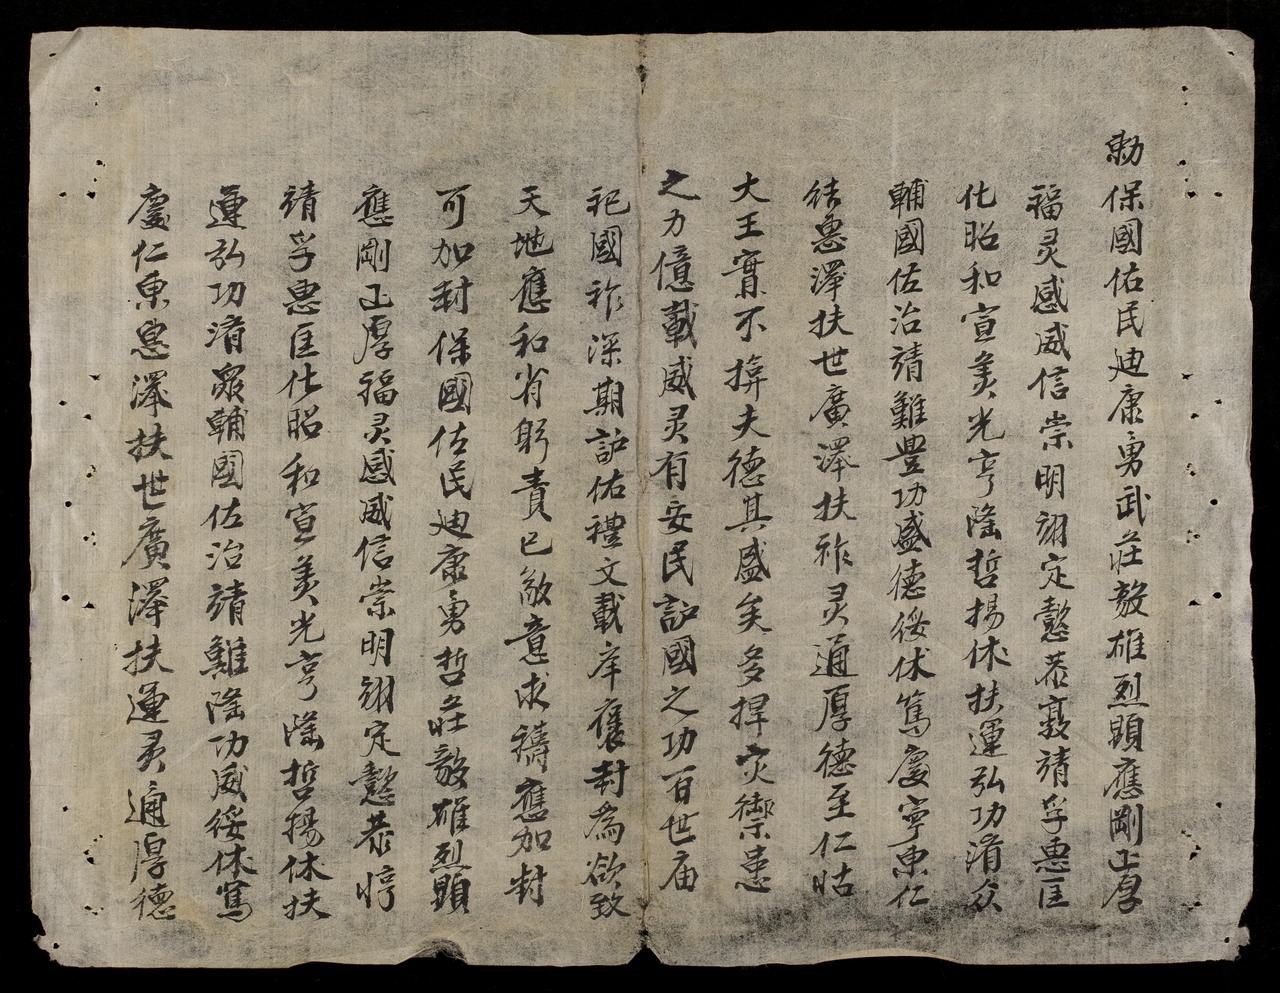 勅保國佑民迪康勇武莊毅雄烈顯應剛正厚
福灵感威信崇明翊定懿恭敦靖孚惠匡
化昭和宣美光亨隆哲揚休扶運弘功濟众
輔國佐治靖難豊功盛德綏休篤慶寧東仁
惠澤扶世廣澤扶祚灵通厚德至仁
大王實不揜夫德其盛矣多捍灾禦患
之力億載威灵有安民諗國之功百世庙
祀國祚深期諗佑禮文載庠褒封為欲致
天地應和省躬責已敬意求禱應加封
可加封保國佑民迪康勇哲莊毅雄烈顯
應剛正厚福灵感威信崇明翊定懿恭惇
靖孚惠匡化昭和宣美光亨隆哲揚休扶
運弘功濟眾輔國佐治靖難隆功威綏休篤
慶仁東惠澤扶世廣澤扶運灵通厚德